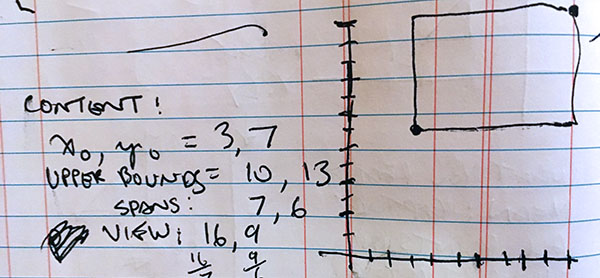 CONTENT:
x₀, y₀ = 3, 7
UPPER BOUNDS = 10, 13
SPANS: 7, 6
VIEW: 16, 9
16/7 9/6